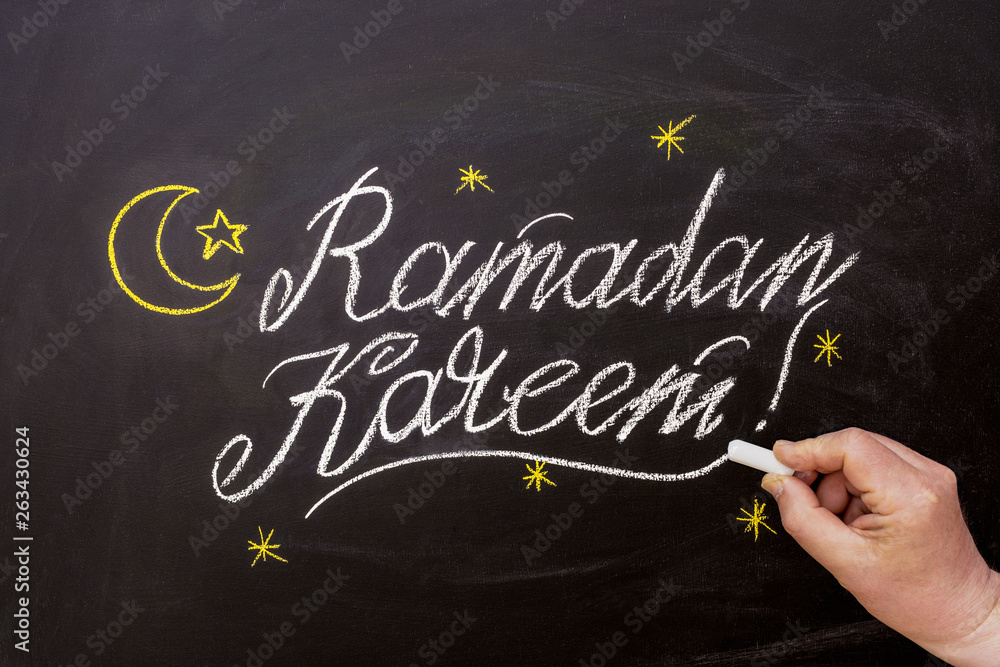 Ramadan
Kareem!
Adobe Stock | #263430624